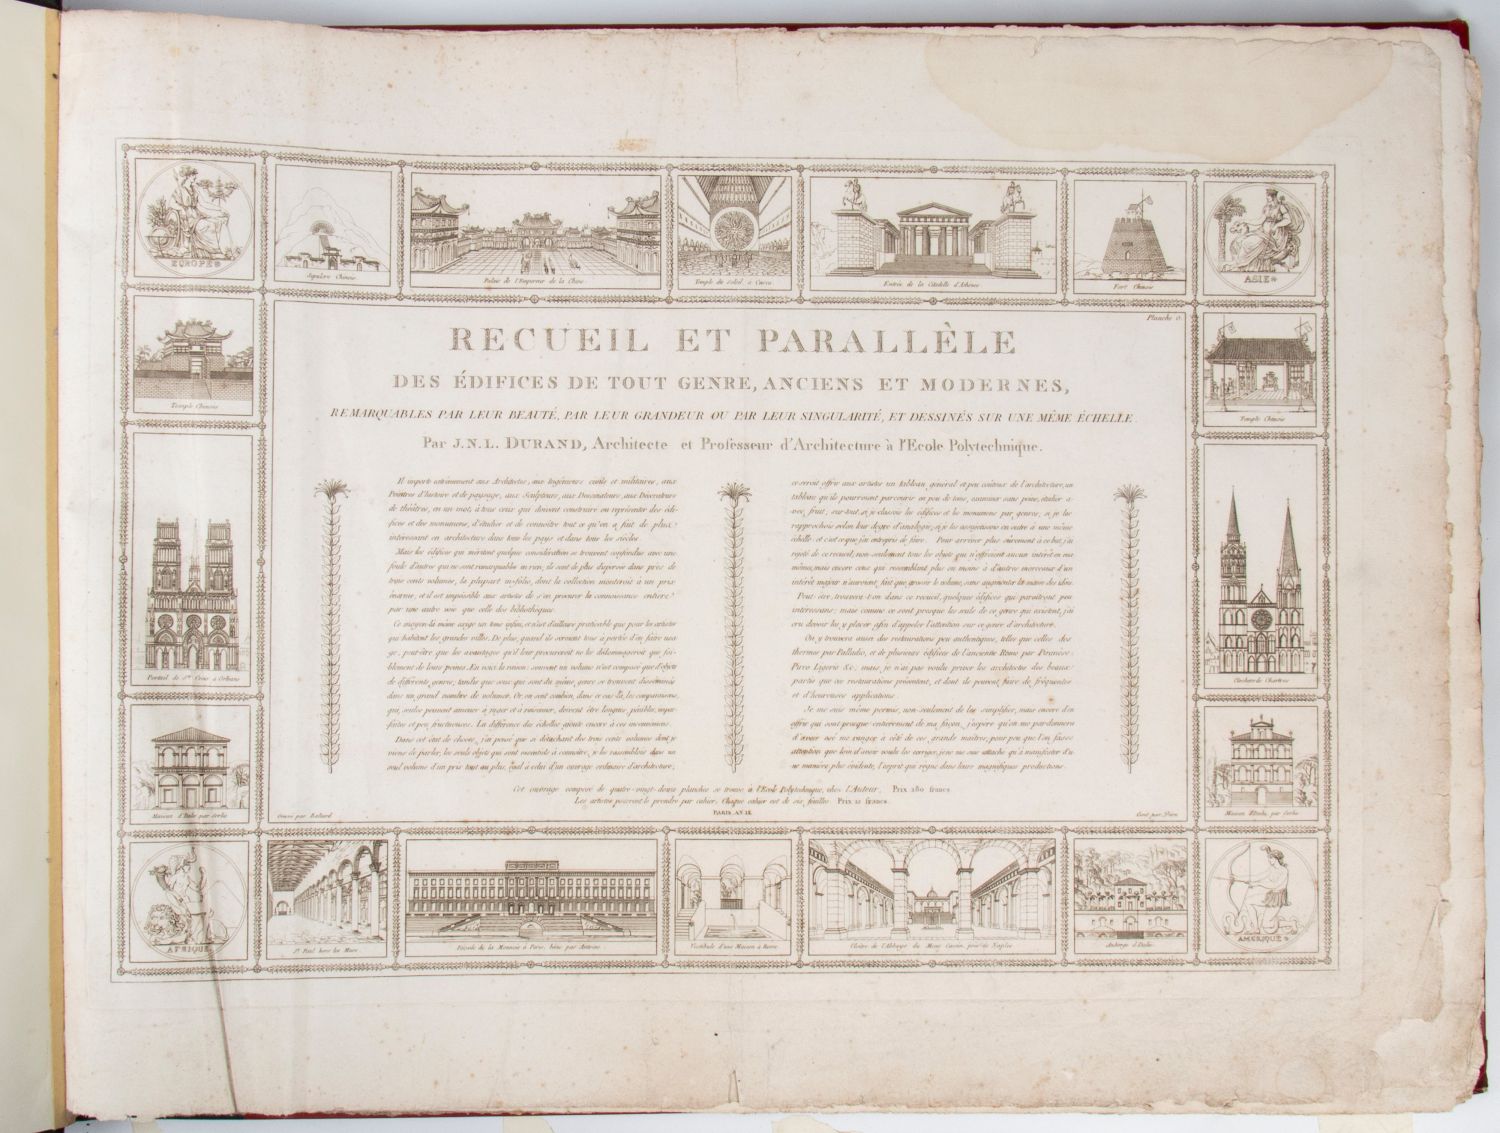 EUROPE
Sépulcre Chinois
Palais de l'Empereur de la Chine
Temple du Soleil à Cusco
Entrée de la Citadelle d'Athènes
Fort Chinois
ASIE
Planche 0.
RECUEIL ET PARALLÈLE
DES ÉDIFICES DE TOUT GENRE, ANCIENS ET MODERNES,
REMARQUABLES PAR LEUR BEAUTÉ, PAR LEUR GRANDEUR OU PAR LEUR SINGULARITÉ, ET DESSINÉS SUR UNE MÊME ÉCHELLE.
Par J.N.L. DURAND, Architecte et Professeur d'Architecture à l'Ecole Polytechnique.
Temple Chinois
Temple Chinois
Il importe extrêmement aux Architectes, aux Ingénieurs civils et militaires, aux
Peintres d'histoire et de paysage, aux Sculpteurs, aux Dessinateurs, aux Décorateurs
de théâtres, en un mot, à tous ceux qui doivent construire ou représenter des édi-
fices et des monumens, d'étudier et de connoître tout ce qu'on a fait de plus
intéressant en architecture dans tous les pays et dans tous les siècles.
Mais les édifices qui méritent quelque considération se trouvent confondus avec une
foule d'autres qui ne sont remarquables en rien; ils sont de plus dispersés dans près de
trois cents volumes, la plupart in-folio, dont la collection monteroit à un prix
énorme, et il est impossible aux artistes de s'en procurer la connoissance entière
par une autre voie que celle des bibliothèques.
Ce moyen-là même exige un tems infini, et n'est d'ailleurs praticable que pour les artistes
qui habitent les grandes villes. De plus, quand ils seroient tous à portée d'en faire usa-
ge, peut-être que les avantages qu'il leur procureroit ne les dédomageroit que foi-
blement de leurs peines. En voici la raison: souvent un volume n'est composé que d'objets
de différents genres, tandis que ceux qui sont du même genre se trouvent disséminés
dans un grand nombre de volumes. Or, on sent combien, dans ce cas là, les comparaisons,
qui, seules peuvent amener à juger et à raisonner, doivent être longues, pénibles, impar-
faites et peu fructueuses. La différence des échelles ajoute encore à ces inconvéniens.
Dans cet état de choses, j'ai pensé que si détachant des trois cents volumes dont je
viens de parler, les seuls objets qui sont essentiels à connoître, je les rassemblois dans un
seul volume d'un prix tout au plus, égal à celui d'un ouvrage ordinaire d'architecture;
ce seroit offrir aux artistes un tableau général et peu coûteux de l'architecture, un
tableau qu'ils pourroient parcourir en peu de tems, examiner sans peine, étudier a-
vec fruit, sur-tout, si je classois les édifices et les monumens par genres, si je les
rapprochois selon leur degré d'analogie, si je les assujetissois en outre à une même
échelle: et c'est ce que j'ai entrepris de faire. Pour arriver plus sûrement à ce but, j'ai
rejeté de ce recueil, non-seulement tous les objets qui n'offroient aucun intérêt en eux
mêmes, mais encore ceux qui ressemblant plus ou moins à d'autres morceaux d'un
intérêt majeur n'auroient fait que grossir le volume, sans augmenter la masse des idées.
Peut-être, trouvera-t-on dans ce recueil, quelques édifices qui paroîtront peu
intéressans; mais comme ce sont presque les seuls de ce genre qui existent, j'ai
cru devoir les y placer afin d'appeler l'attention sur ce genre d'architecture.
On y trouvera aussi des restaurations peu authentiques, telles que celles des
thermes par Palladio, et de plusieurs édifices de l'ancienne Rome par Piranese,
Pirro Ligorio &c; mais, je n'ai pas voulu priver les architectes des beaux
partis que ces restaurations présentent, et dont ils peuvent faire de fréquentes
et d'heureuses applications.
Je me suis même permis, non-seulement de les simplifier, mais encore d'en
offrir qui sont presque entièrement de ma façon; j'espère qu'on me pardonnera
d'avoir osé me ranger à côté de ces grands maîtres, pour peu que l'on fasse
attention que loin d'avoir voulu les corriger, je ne me suis attaché qu'à manifester d'u-
ne manière plus évidente, l'esprit qui règne dans leurs magnifiques productions.
Portail de Ste Croix à Orléans
Clochers de Chartres
Cet ouvrage composé de quatre-vingt-douze planches se trouve à l'Ecole Polytechnique, chez l'Auteur. Prix 180 francs.
Les artistes pourront le prendre par cahier. Chaque cahier est de six feuilles Prix 12 francs.
PARIS AN IX
Maison d'Italie par Serlio
Gravé par Baltard
Maison d'Italie, par Serlio
AFRIQUE
St Paul hors les Murs
Façade de la Monnoie à Paris, bâtie par Antoine
Vestibule d'une Maison à Rome
Cloître de l'Abbaye du Mont Cassin, près de Naples
Auberge d'Italie
AMERIQUE